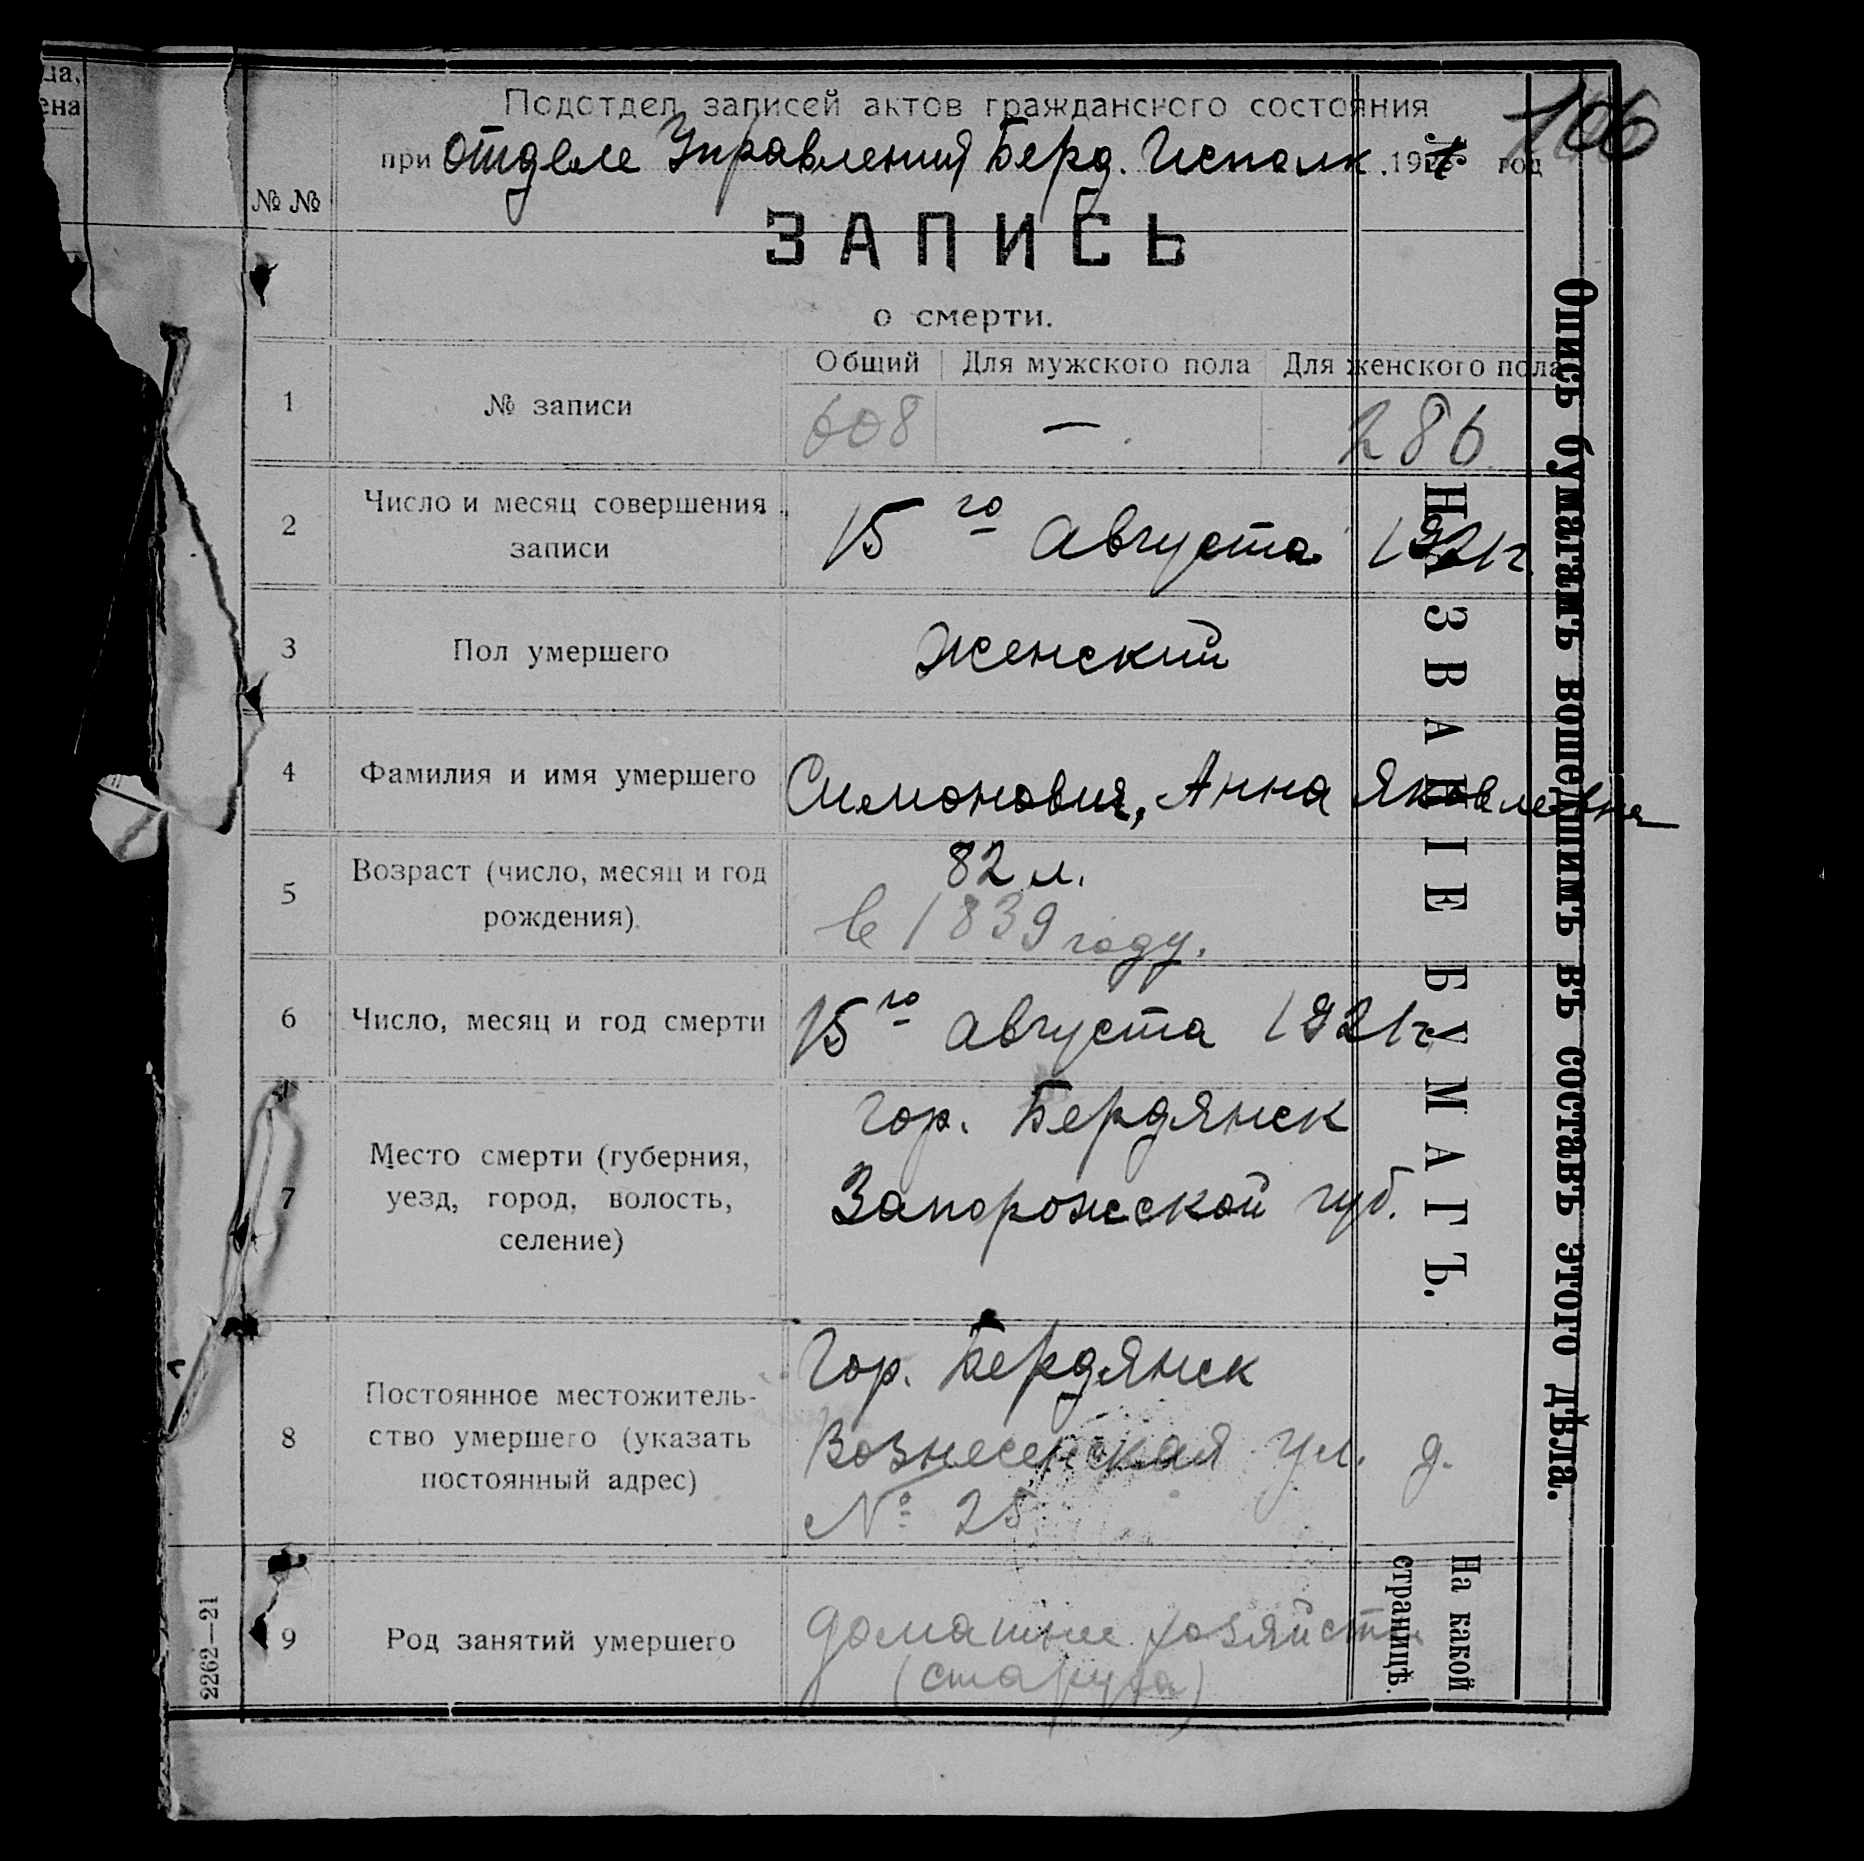 ца,
ена
Подотдел записей актов гражданского состояния
при Отделе Управления Берд. Исполк. 1921 год
106
№ №
ЗАПИСЬ
о смерти.
Общий Для мужского пола Для женского пола
1 № записи 608 — 286
2 Число и месяц совершения записи
15го Августа 1921г.
3 Пол умершего Женский
4 Фамилия и имя умершего Симонович, Анна Яковлевна
5 Возраст (число, месяц и год рождения).
82 л.
в 1839 году.
6 Число, месяц и год смерти 15го Августа 1921г.
7 Место смерти (губерния,
уезд, город, волость,
селение)
гор. Бердянск
Запорожской губ.
8 Постоянное местожитель-
ство умершего (указать
постоянный адрес)
Гор. Бердянск
Вознесенская ул. д.
№ 25
9 Род занятий умершего
домашнее хозяйство
(старуха)
2262—21
НАЗВАНІЕ БУМАГЪ.
На какой
страницѣ.
Опись бумагамъ вошедшимъ въ составъ этого дѣла.